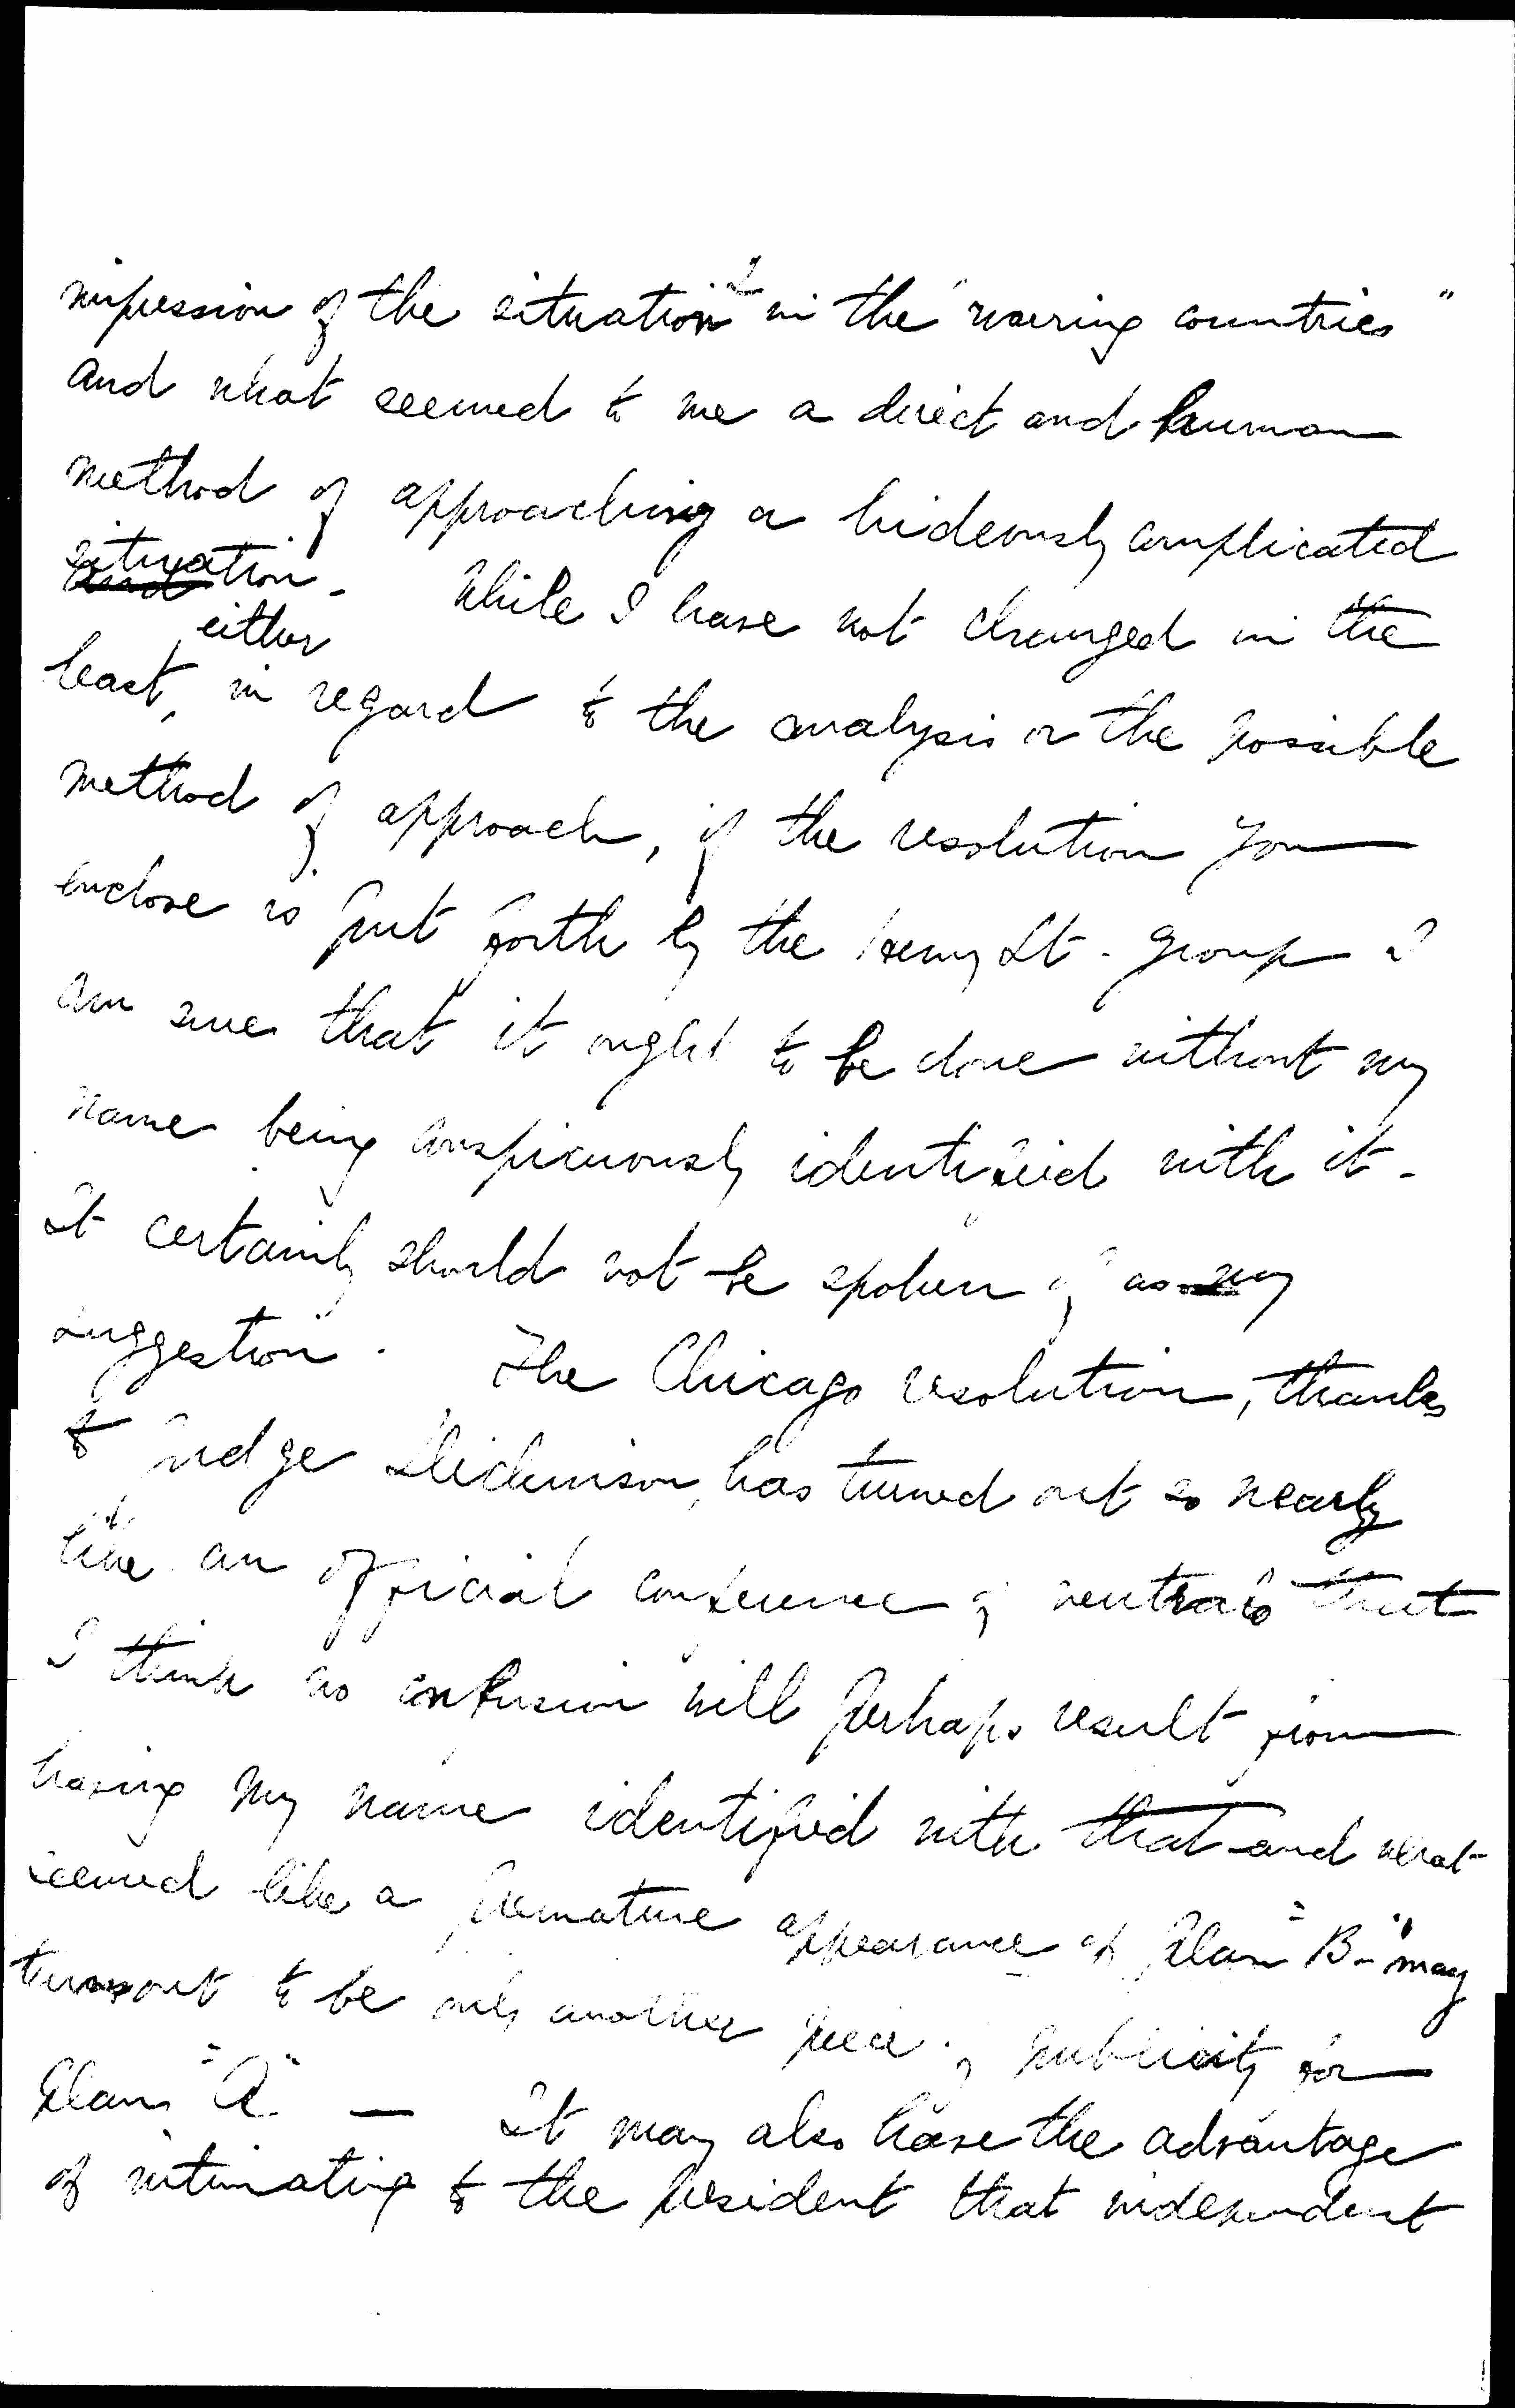 impression of the situation in the "warring countries"
and what seemed to me a direct and human
method of approaching a hideously complicated
situation. While I have not changed in the
either
least, in regard to the analysis or the possible
method of approach, if the resolution you
enclose is put forth by the Henry St. group I
am sure that it ought to be done without my
name being conspicuously identified with it.
It certainly should not be spoken of as my
suggestion. The Chicago resolution, thanks
to Judge Dickinson, has turned out so nearly
like an official conference of neutrals that
I think no confusion will perhaps result from
having my name identified with that and what
seemed like a premature appearance of plan "B" may
turn out to be only another piece of publicity for
plan "A" — It may also have the advantage
of intimating to the President that independent